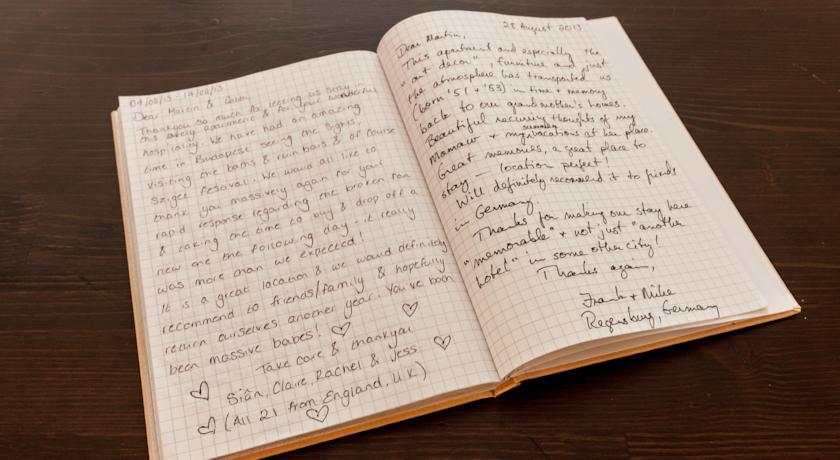 04/08/13 - 14/08/13
Dear Martin &
Thankyou so much for letting us stay in
this lovely apartment & for your wonderful
hospitality. We have had an amazing
time in Budapest seeing the sights,
visiting the baths & ruin bars & of course
Sziget Festival. We would all like to
thank you massively again for your
rapid response regarding the broken fan
& taking the time to buy & drop off a
new one the following day - it really
was more than we expected!
It is a great location & we would definitely
recommend to friends/family & hopefully
return ourselves another year. You've both
been massive babes! ♡
Take care & thankyou
Siân, Claire, Rachel & Jess
(All 21 from England, U.K)
28 August 2013
Dear Martin,
This apartment and especially the
"art decor", furniture and just
the atmosphere has transported us
(born '51 + '53) in time + memory
back to our grandmother's homes.
Beautiful recurring thoughts of my
Mamaw + my summer vacations at her place.
Great memories, a great place to
stay — location perfect!
Will definitely recommend it to friends
in Germany.
Thanks for making our stay here
"memorable" + not just "another
hotel" in some other city!
Thanks again,
Frank + Mike
Regensburg, Germany